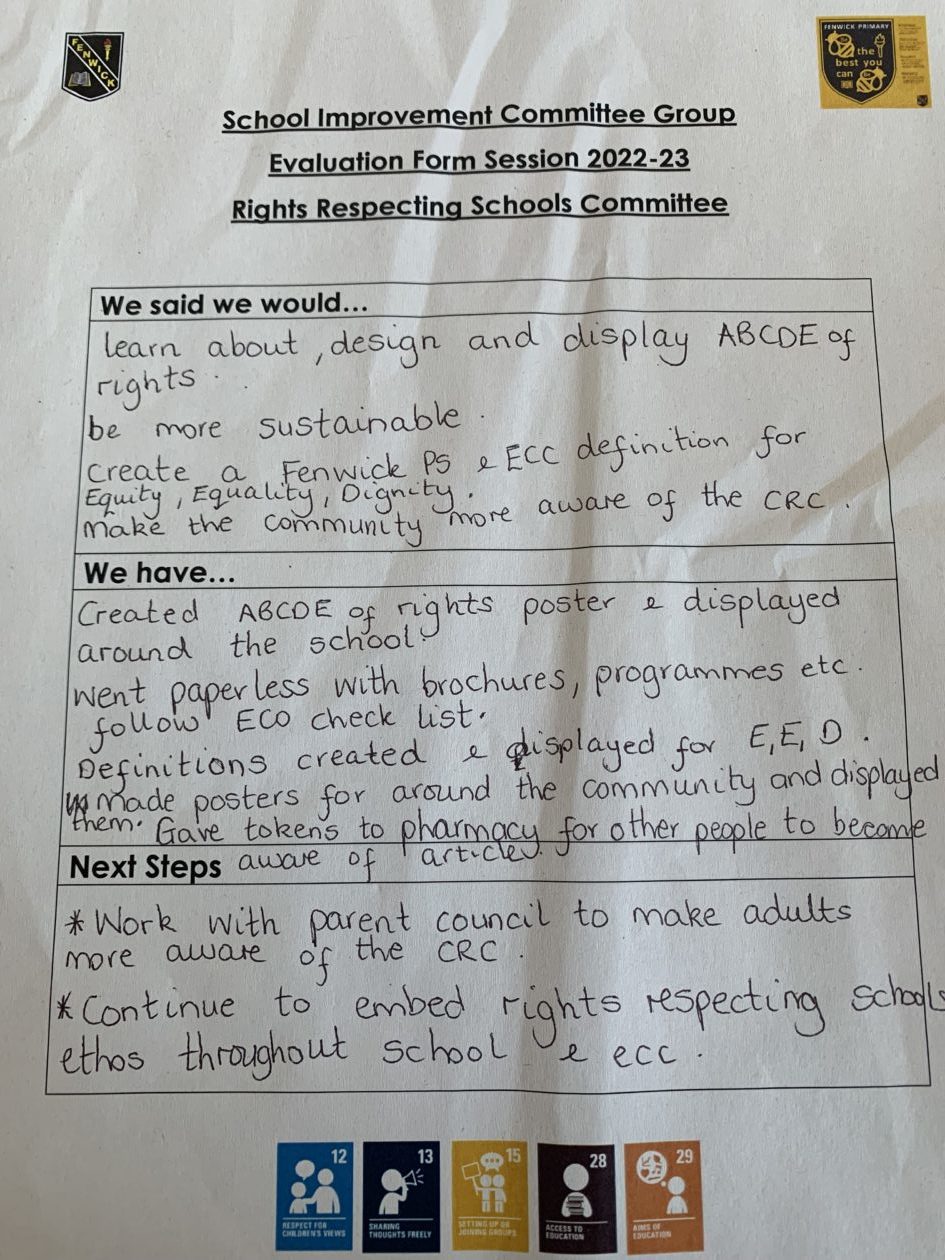 FENWICK
FENWICK PRIMARY
Be the
best you
can Be
School Improvement Committee Group
Evaluation Form Session 2022-23
Rights Respecting Schools Committee
We said we would...
learn about, design and display ABCDE of
rights.
be more sustainable.
Create a Fenwick PS & ECC definition for
Equity, Equality, Dignity.
Make the community more aware of the CRC.
We have...
Created ABCDE of rights poster & displayed
around the school.
Went paperless with brochures, programmes etc.
follow ECO check list.
Definitions created & displayed for E, E, D.
Made posters for around the community and displayed
them. Gave tokens to pharmacy for other people to become
aware of article.
Next Steps
* Work with parent council to make adults
more aware of the CRC.
* Continue to embed rights respecting schools
ethos throughout school & ecc.
12
RESPECT FOR
CHILDREN'S VIEWS
13
SHARING
THOUGHTS FREELY
15
SETTING UP OR
JOINING GROUPS
28
ACCESS TO
EDUCATION
29
AIMS OF
EDUCATION